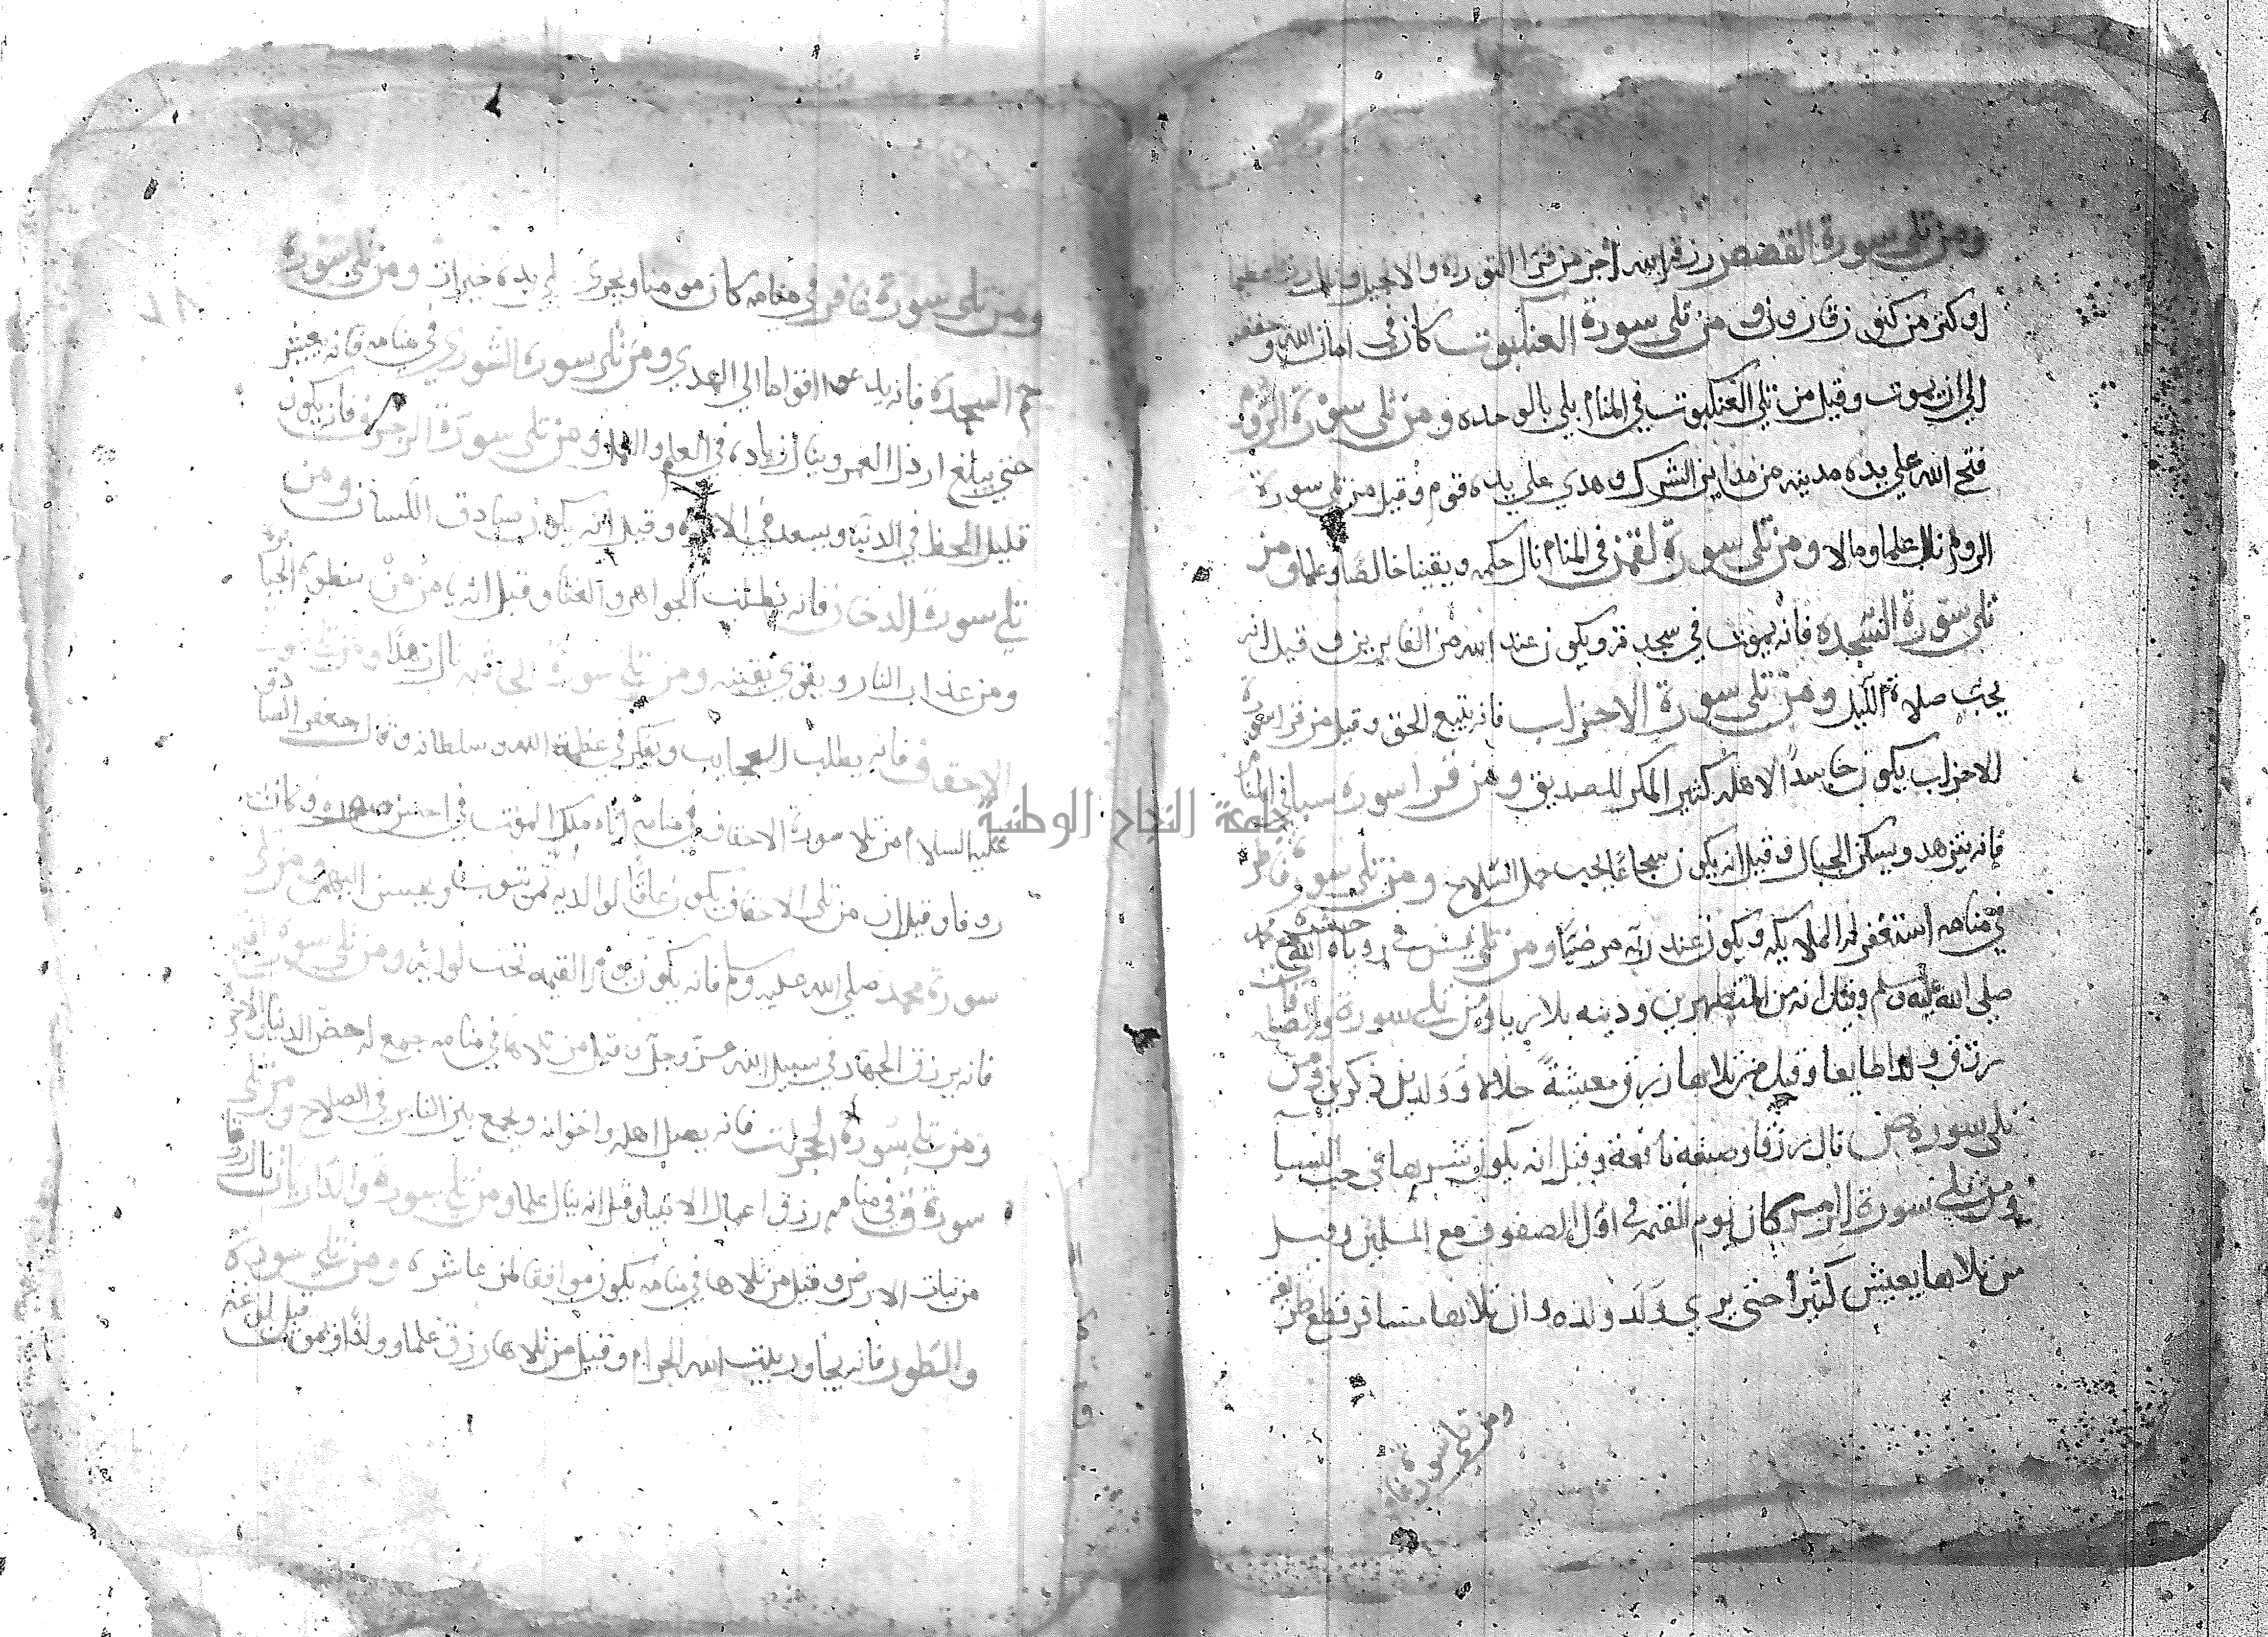 ومن تلى سورة القصص رزقه الله أجر من قرا التوراة والانجيل
او كنز من كنوز قارون ومن تلى سورة العنكبوت كان في امان الله و
الي ان يموت وقيل من تلى العنكبوت في المنام بلي بالوحده ومن تلى سورة الروم
فتح الله علي يده مدينه من مداين الشرك وهدي علي يده قوم وقيل من تلى سورة
الروم نال علما ومالا ومن تلى سورة لقمن في المنام نال حكمه ويقينا خالصا وعلما ومن
تلى سورة السجده فانه يموت في سجدته ويكون عند الله من الفايزين وقيل انه
يحب صلاة الليل ومن تلى سورة الاحزاب فانه يتبع الحق وقيل من قرا سورة
الاحزاب يكون حاسدا لاهله كثير المكر للصديق ومن قرا سورة سبا في المنام
فانه يتزهد ويسكن الجبال وقيل انه يكون شجاعا يحب حمل السلاح ومن تلى سورة فاطر
في منامه استغفر له الملايكه ويكون عند ربه مرضيا ومن تلى يس في روياه حشره الله مع محمد
صلى الله عليه وسلم وقيل انه من المتطهرين ودينه بلا ريا ومن تلى سورة والصافات
رزق ولدا طايعا وقيل من تلاها رزق معيشة حلالا وولدين ذكرين ومن
تلى سورة ص نال رزقا وصنعه نافعة وقيل انه يكون شرها في حب النسا
ومن تلي سورة الزمر كان يوم القيمه في اول الصفوف مع المسلمين وقيل
من تلاها يعيش كثيرا حتى يري ولد ولده وان تلاها مسافر قطع طريقه
ومن تلى سورة غافر
ومن تلى سورة غافر في منامه كان مومنا ويجري علي يده خيرات ومن تلى سورة
حم السجدة فانه يدعوا اقواما الي الهدي ومن تلى سورة الشوري في منامه فانه يعيش
حتي يبلغ ارذل العمر وينال زياده في العلم والعمل ومن تلى سورة الزخرف فانه يكون
قليل الحظ في الدنيا ويسعد في الاخره وقيل انه يكون صادق اللسان ومن
تلي سورة الدخان فانه يطلب الجواهر والغنا وقيل انه يامن من سطوة الجبابرة
ومن عذاب النار ويقوي يقينه ومن تلى سورة الجاثيه نال زهدا ومن تلى سورت
الاحقاف فانه يطلب العجايب ويفكر في عظمة الله وسلطانه وقال جعفر الصادق
عليه السلام من تلا سورة الاحقاف في منامه اتاه ملك الموت في احسن صوره وكانت
روفا وقيل ان من تلى الاحقاف يكون عاقا لوالديه ثم يتوب ويحسن اليهم ومن تلى
سورة محمد صلي الله عليه وسلم فانه يكون يوم القيمه تحت لوايه ومن تلى سورة الفتح
فانه يرزق الجهاد في سبيل الله عز وجل وقيل من تلاها في منامه جمع له حظ الدنيا والاخره
ومن تلى سورة الحجرات فانه يصل اهله واخوانه ويجمع بين الناس في الصلاح ومن تلى
سورة ق في منامه رزق اعمال الانبيا وقيل انه ينال علما ومن تلى سورة والذاريات نال رزقا
من نبات الارض وقيل من تلاها في منامه يكون موافقا لمن عاشره ومن تلى سورة
والطور فانه يجاور بيت الله الحرام وقيل من تلاها رزق علما وولدا ويموت قبل بلوغه
جامعة النجاح الوطنية